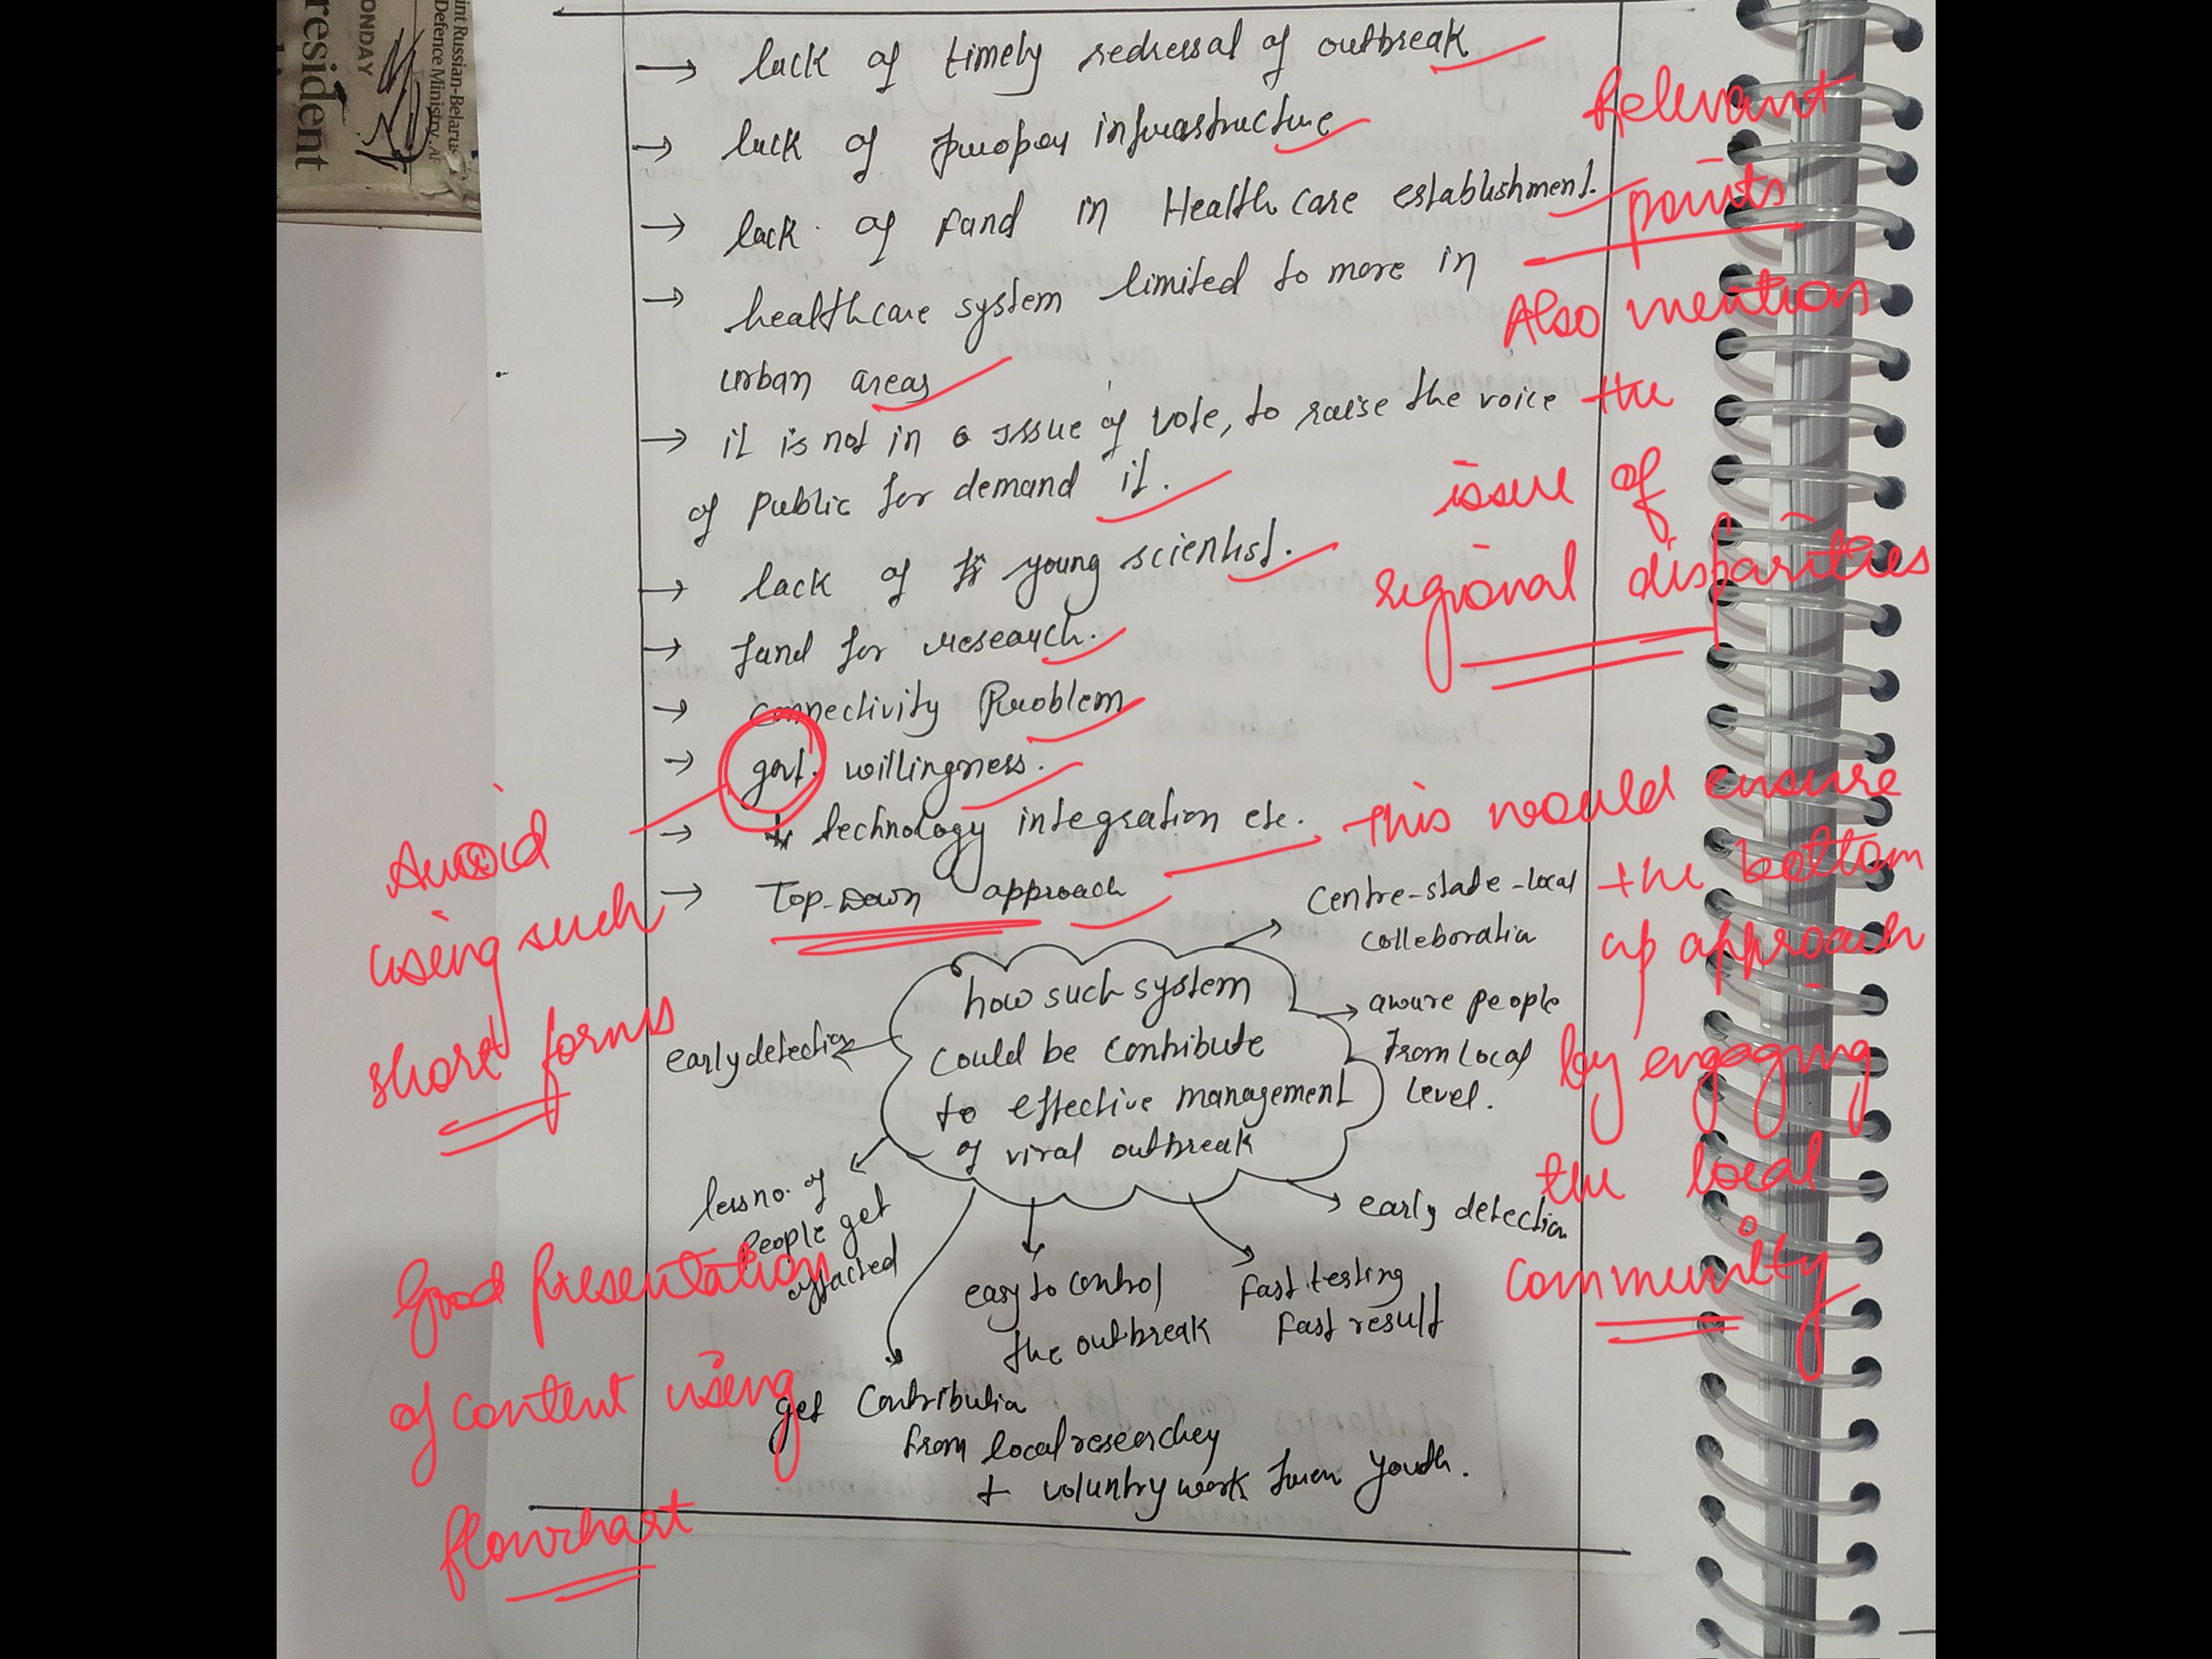 int Russian-Belarus
Defence Ministry. AP
ONDAY
resident
→ lack of timely redressal of outbreak
→ lack of proper infrastructure
→ lack of fand in Health care establishment.
→ healthcare system limited to more in
urban areas
→ it is not in a issue of vote, to raise the voice
of public for demand it.
→ lack of young scientist.
→ fand for research.
→ connectivity Problem
→ govt. willingness.
→ technology integration etc.
→ Top-Down approach
Relevant
points
Also mention
the
issue of
regional disparities
Avoid
using such
short forms
this would ensure
the bottom
up approach
by engaging
the local
community
how such system
could be contribute
to effective management
of viral outbreak
Centre-state-local
colleboratia
aware people
from local
level.
early detection
fast testing
fast result
easy to control
the outbreak
get Contributia
from local researchey
+ voluntry work from Youth.
less no. of
people get
affacted
early detection
Good presentation
of content using
flowchart